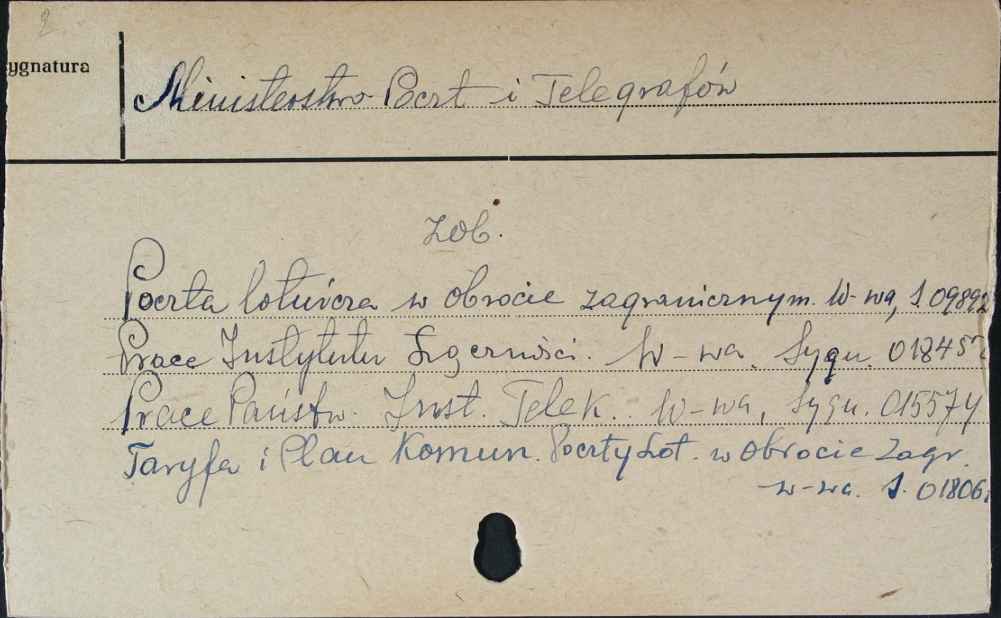 2
ygnatura
Ministerstwo Poczt i Telegrafów
zob.
Poczta lotnicza w obrocie zagranicznym. W-wa, S. 09892
Prace Instytutu Łączności. W-wa. Sygn. 01845
Prace Państw. Inst. Telek. W-wa, Sygn. 015574
Taryfa i Plan Komun. Poczty Lot. w obrocie Zagr.
w-wa. S. 01806